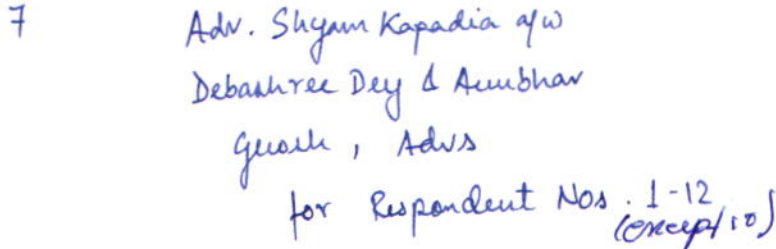 7 Adv. Shyam Kapadia a/w
Debashree Dey & Anubhav
Ghosh, Advs
for Respondent Nos. 1-12
(except 10)